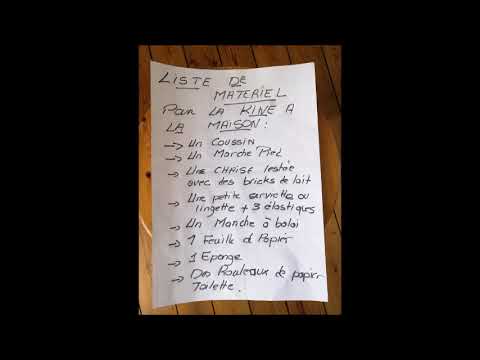 LISTE DE
MATERIEL
POUR LA KINE A
LA MAISON :
→ Un COUSSIN
→ Un Marche Pied
→ Une CHAISE lestée
avec des bricks de lait
→ Une petite serviette ou
lingette + 3 élastiques
→ Un Manche à balai
→ 1 Feuille de Papier
→ 1 Eponge
→ Des Rouleaux de papier
Toilette.